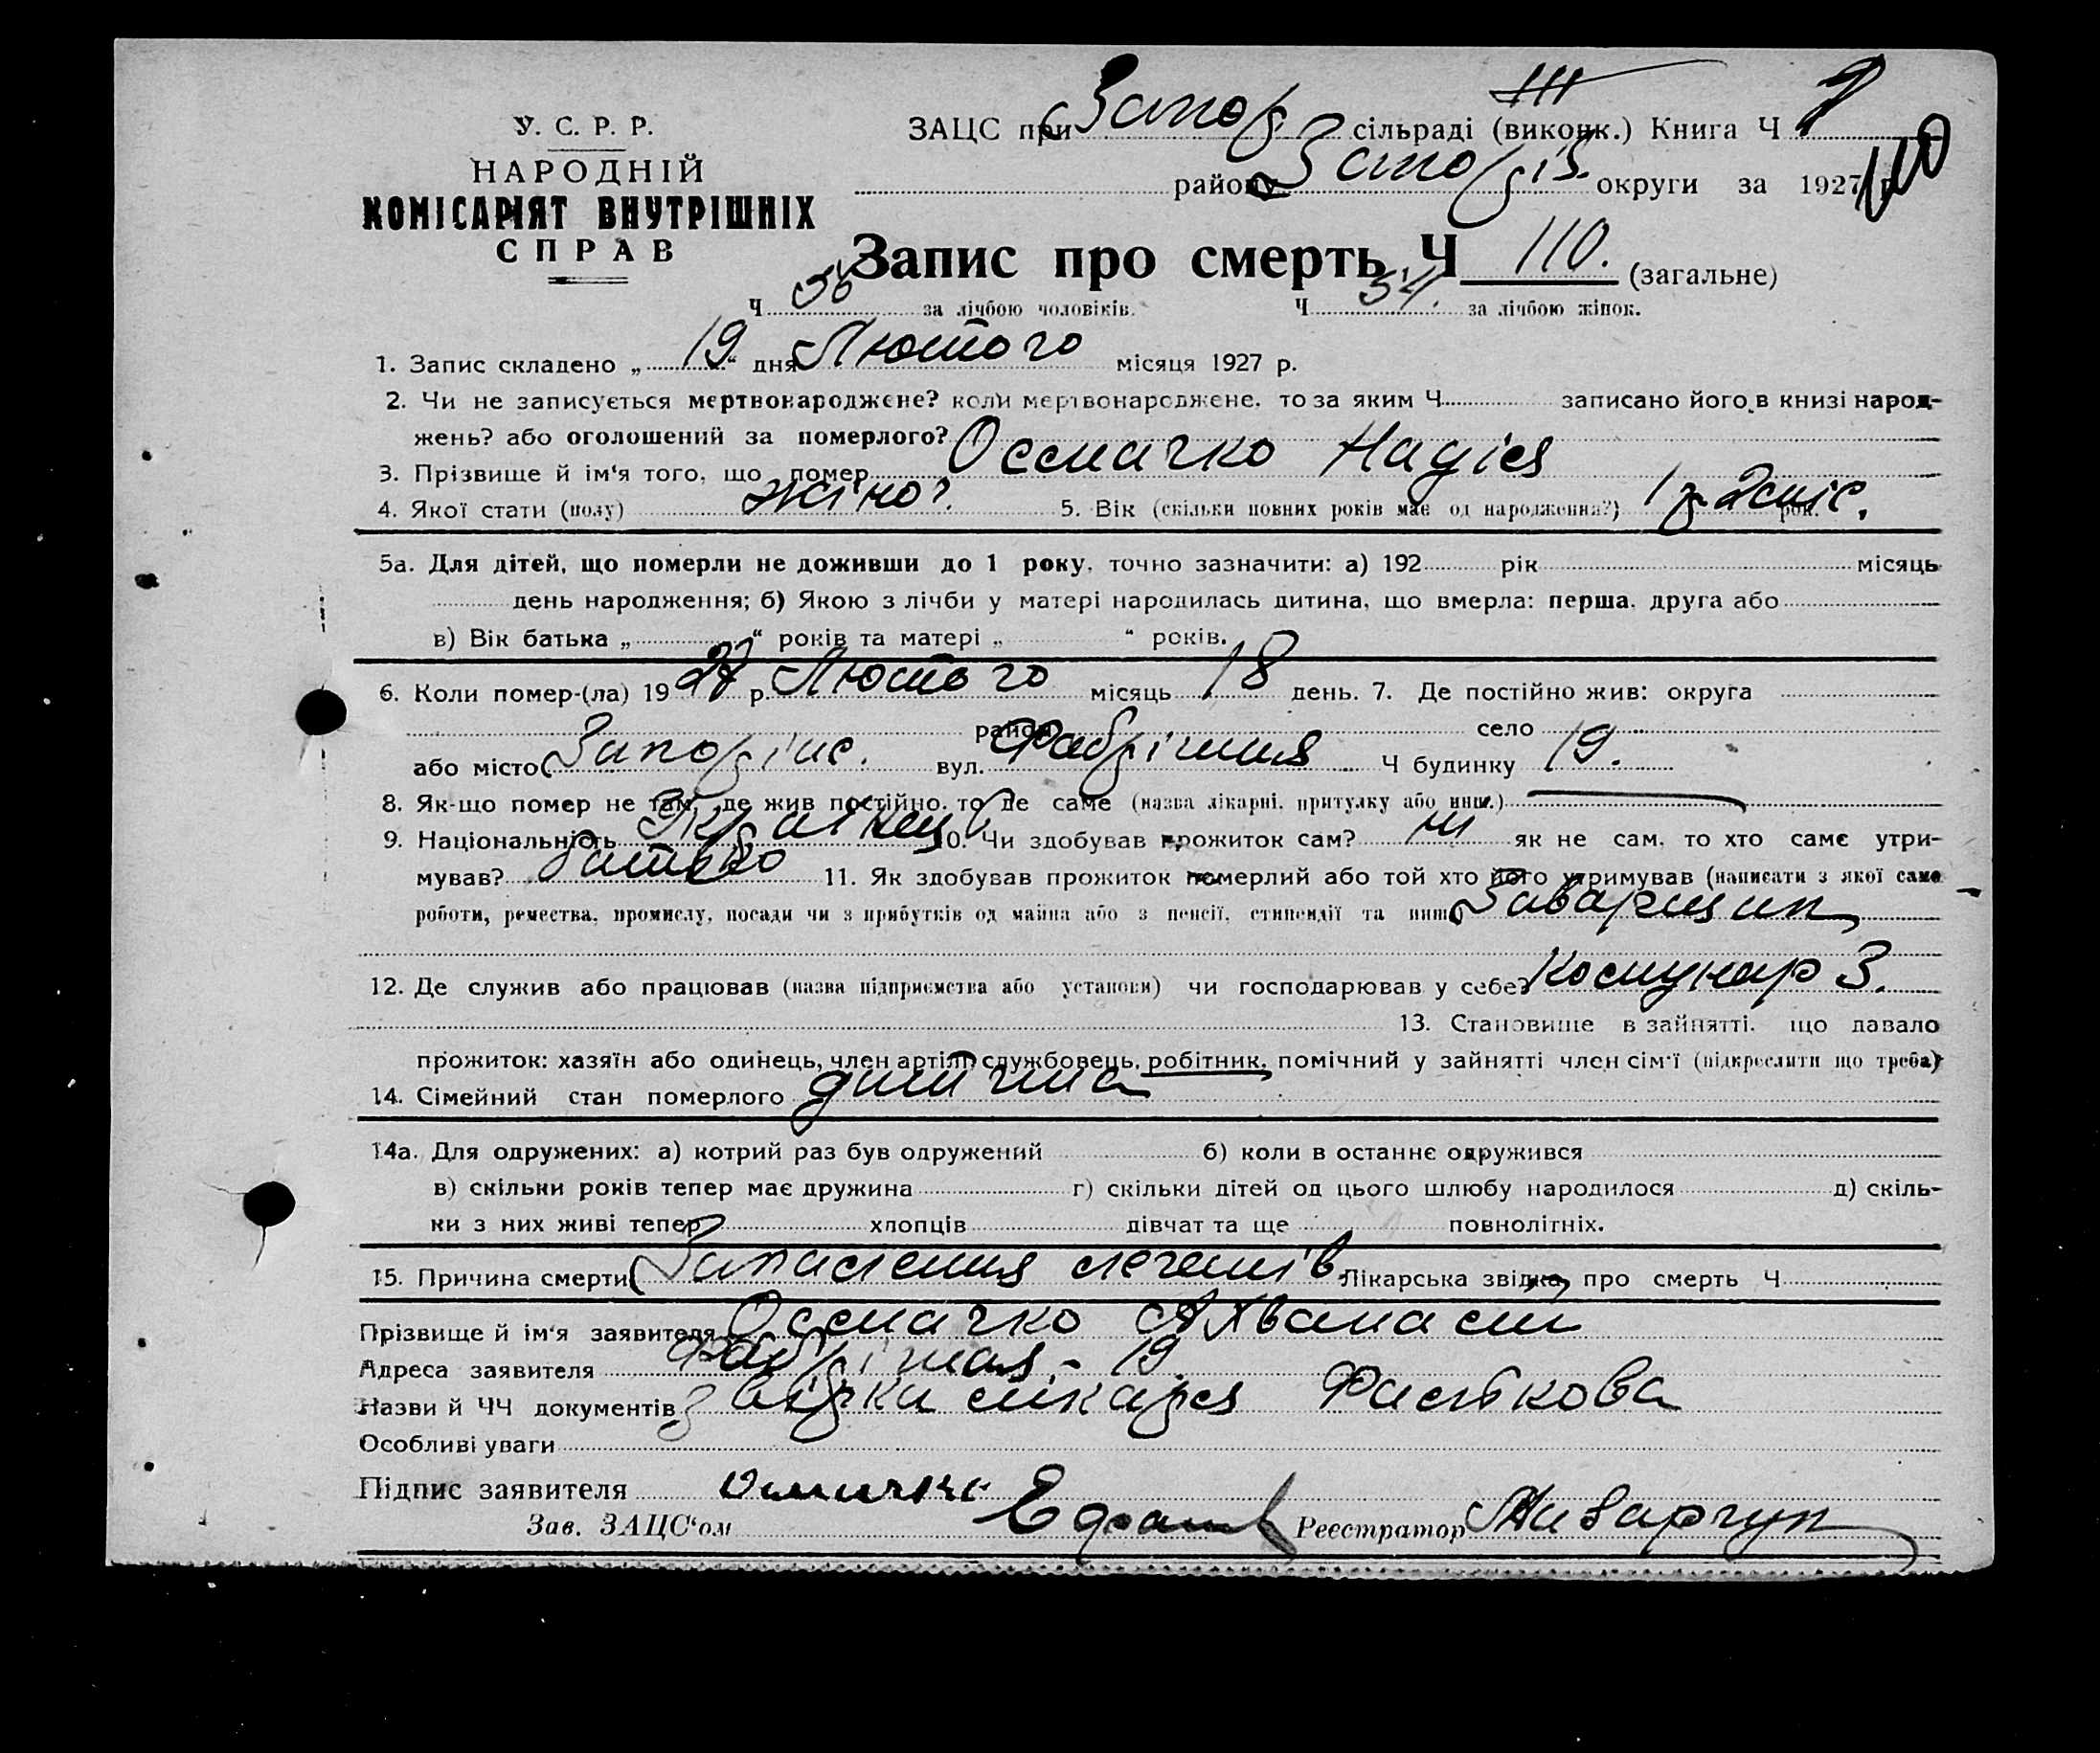 У. С. Р. Р.
НАРОДНІЙ
КОМІСАРІЯТ ВНУТРІШНІХ
СПРАВ
ІІІ
ЗАЦС при Запор. сільраді (виконк.) Книга Ч
району Запоріз. округи за 1927 р. 110
Запис про смерть Ч 110. (загальне)
Ч 56 за лічбою чоловіків. Ч 54. за лічбою жінок.
1. Запис складено „ 19 “ дня Лютого місяця 1927 р.
2. Чи не записується мертвонароджене? коли мертвонароджене, то за яким Ч записано його в книзі народ-
жень? або оголошений за померлого?
3. Прізвище й ім‘я того, що помер Осмачко Надія
4. Якої стати (полу) жіно? 5. Вік (скільки повних років має од народження?) 1 р 2 міс. рок.
5а. Для дітей, що померли не доживши до 1 року, точно зазначити: а) 192 рік місяць
день народження; б) Якою з лічби у матері народилась дитина, що вмерла: перша, друга або
в) Вік батька „ “ років та матері „ “ років.
6. Коли помер-(ла) 1927 р. Лютого місяць 18 день. 7. Де постійно жив: округа
район село
або місто Запоріж. вул. Фабрічная Ч будинку 19.
8. Як-що помер не там, де жив постійно, то де саме (назва лікарні, притулку або инш.)
9. Національність Українець 10. Чи здобував прожиток сам? ні як не сам, то хто саме утри-
мував? батько 11. Як здобував прожиток померлий або той хто його утримував (написати з якої саме
роботи, ремества, промислу, посади чи з прибутків од майна або з пенсії, стипендії та инш.) Заварщик
12. Де служив або працював (назва підприємства або установи) чи господарював у себе? Комунар З.
13. Становище в зайнятті, що давало
прожиток: хазяїн або одинець, член артілі, службовець, робітник, помічний у зайнятті член сім‘ї (підкреслити що треба)
14. Сімейний стан померлого дитина
14а. Для одружених: а) котрий раз був одружений б) коли в останнє одружився
в) скільки років тепер має дружина г) скільки дітей од цього шлюбу народилося д) скіль-
ки з них живі тепер хлопців дівчат та ще повнолітніх.
15. Причина смерти Запалення легенів Лікарська звідка про смерть Ч
Прізвище й ім‘я заявителя Осмачко Ахванасій
Адреса заявителя Фабрічная - 19
Назви й ЧЧ документів звідки лікаря
Особливі уваги
Підпис заявителя Осмачко
Зав. ЗАЦС‘ом Реєстратор